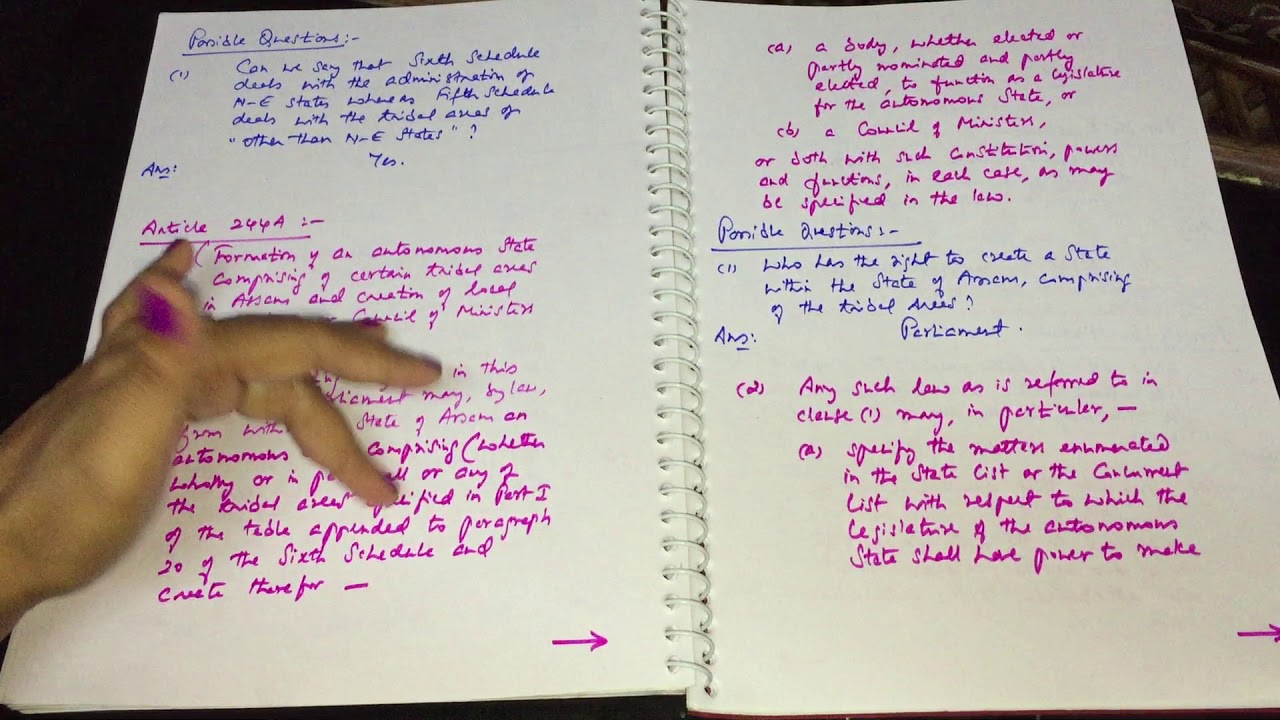 Possible Questions:-
(1) Can we say that Sixth Schedule
deals with the administration of
N-E states whereas Fifth Schedule
deals with the tribal areas of
"other than N-E States" ?
Ans: Yes.
Article 244A :-
(Formation of an autonomous State
comprising of certain tribal areas
in Assam and creation of local
Council of Ministers
in this
may, by law,
State of Assam an
autonomous comprising (whether
wholly or in all or any of
the tribal areas specified in Part I
of the table appended to paragraph
20 of the Sixth Schedule and
create therefor —
→
(a) a body, whether elected or
partly nominated and partly
elected, to function as a legislature
for the autonomous State, or
(b) a Council of Ministers,
or both with such constitution, powers
and functions, in each case, as may
be specified in the law.
Possible Questions:-
(1) Who has the right to create a State
within the State of Assam, comprising
of the tribal areas?
Ans: Parliament.
(2) Any such law as is referred to in
clause (1) may, in particular, —
(a) specify the matters enumerated
in the State List or the Concurrent
List with respect to which the
legislature of the autonomous
State shall have power to make
→